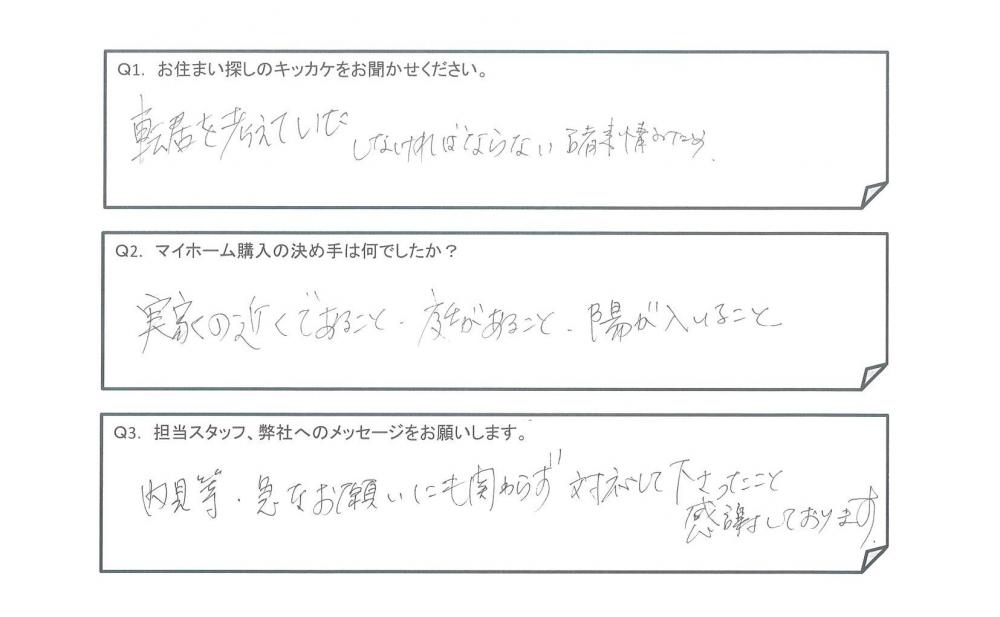 Q1. お住まい探しのキッカケをお聞かせください。
転居を考えていた
しなければならない諸事情のため.
Q2. マイホーム購入の決め手は何でしたか？
実家の近くであること・庭があること・陽が入いること
Q3. 担当スタッフ、弊社へのメッセージをお願いします。
内見等・急なお願いにも関わらず対応して下さったこと
感謝しております.